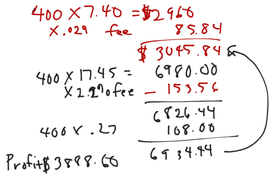 400 × 7.40 = $2960
× .029 fee 85.84
$ 3045.84
400 × 17.45 = 6980.00
× 2.2% fee - 153.56
6826.44
400 × .27 108.00
6934.44
Profit $3888.60